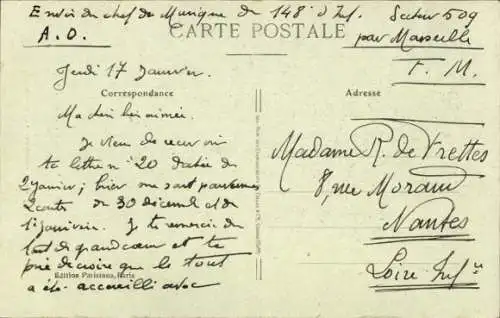 Envoi du chef de Musique du 148e d'Inf. Secteur 509
A.O. CARTE POSTALE par Marseille
F. M.
Jeudi 17 Janvier.
Correspondance
Adresse
Ma chère bien aimée.
Je viens de recevoir
ta lettre n° 20 datée du
2 Janvier; hier me sont parvenues
2 cartes du 30 décembre et du
1er Janvier. Je te remercie de
tout de grand cœur et te
prie de croire que le tout
a été accueilli avec
Madame R. de Frettes
8, rue Morand
Nantes
Loire Infre
Edition Parisiana, Paris